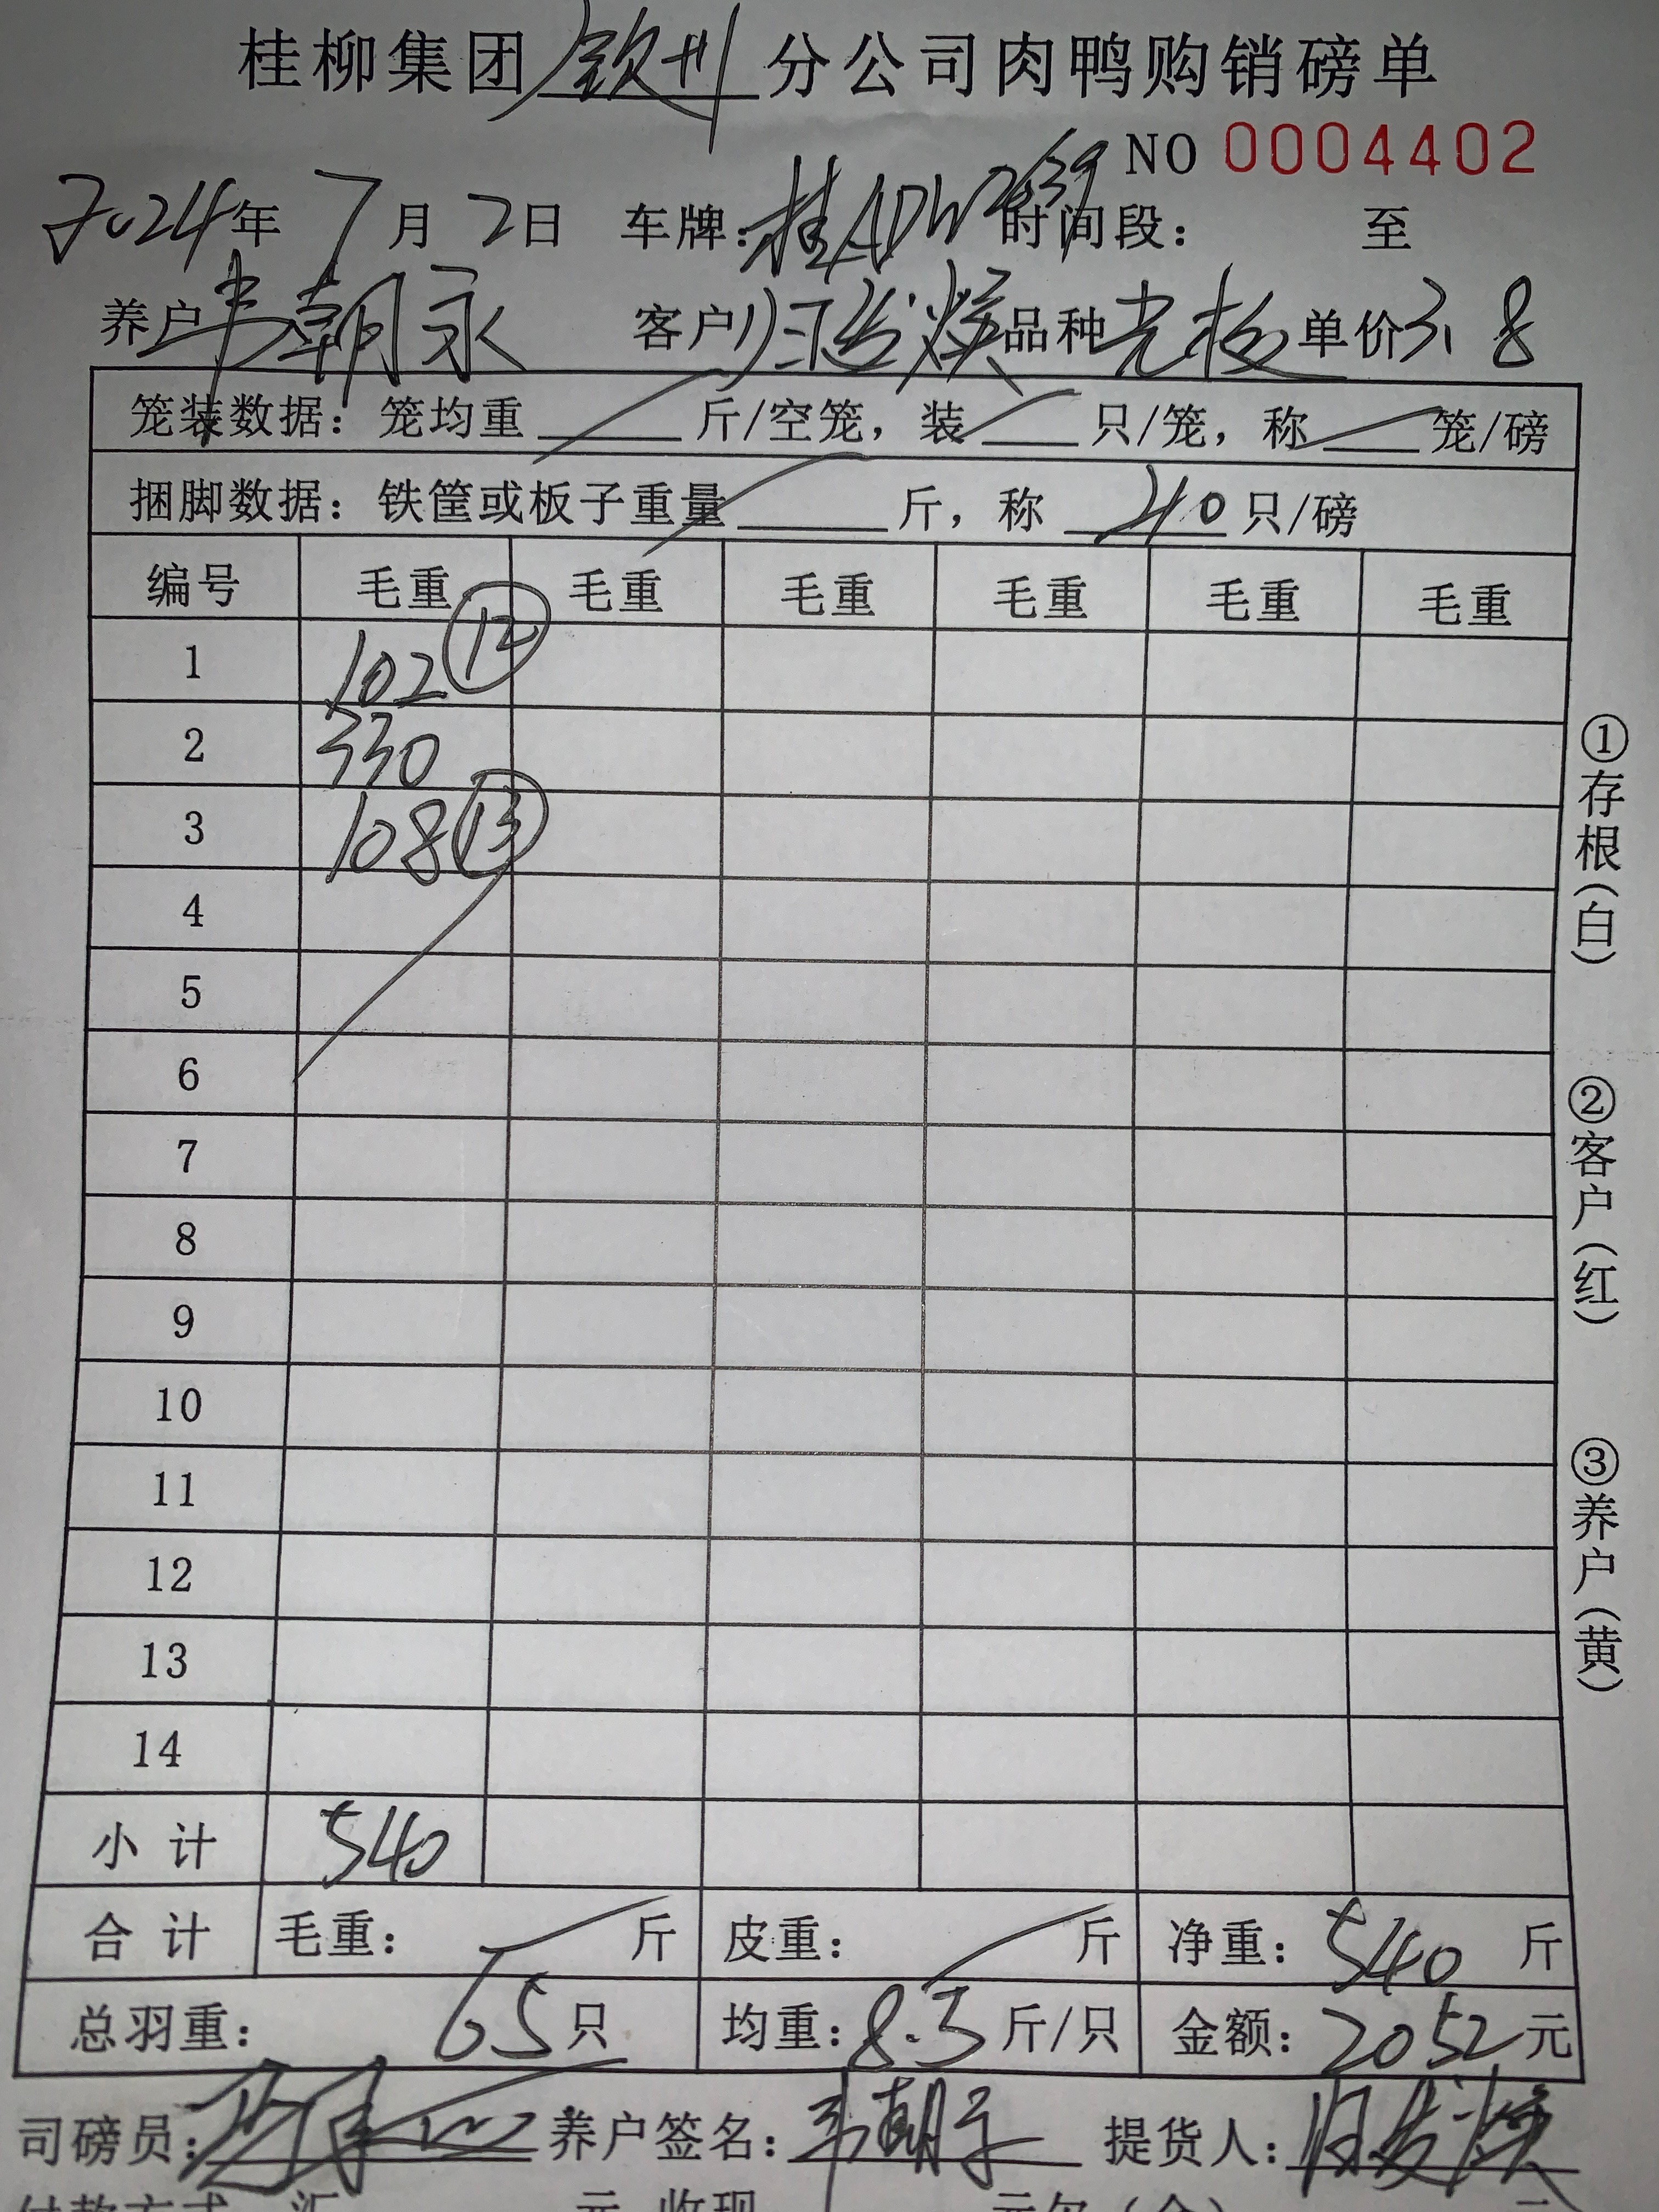 桂柳集团钦州分公司肉鸭购销磅单
NO 0004402
2024年7月2日 车牌:桂ADW2639 时间段: 至
养户韦朝永 客户 品种光板 单价3.8
笼装数据:笼均重 斤/空笼,装 只/笼,称 笼/磅
捆脚数据:铁筐或板子重量 斤,称 40 只/磅
编号 毛重 毛重 毛重 毛重 毛重 毛重
1 102 ⑫
2 330
3 108 ⑬
4
5
6
7
8
9
10
11
12
13
14
小计 540
合计 毛重: 斤 皮重: 斤 净重:540 斤
总羽重: 65只 均重:8.3斤/只 金额:2052元
司磅员: 养户签名:韦朝永 提货人:
付款方式 汇 元 收现 元欠(余)
①存根(白)
②客户(红)
③养户(黄)